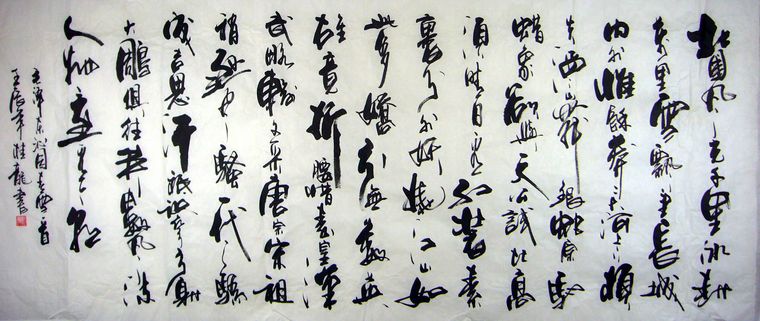 北國风光千里冰封
万里雪飘望長城
内外惟馀莽莽大河上下顿
失滔滔山舞银蛇原驰
蜡象欲與天公試比高
须晴日看红装素
裹分外妖娆江山如
此多嬌引無數英
雄竞折腰惜秦皇漢
武略輸文采唐宗宋祖
稍逊风骚一代天骄
成吉思汗祇識弯弓射
大鵰俱往矣數風流
人物还看今朝
毛泽东沁园春雪一首
壬辰年桂龍書